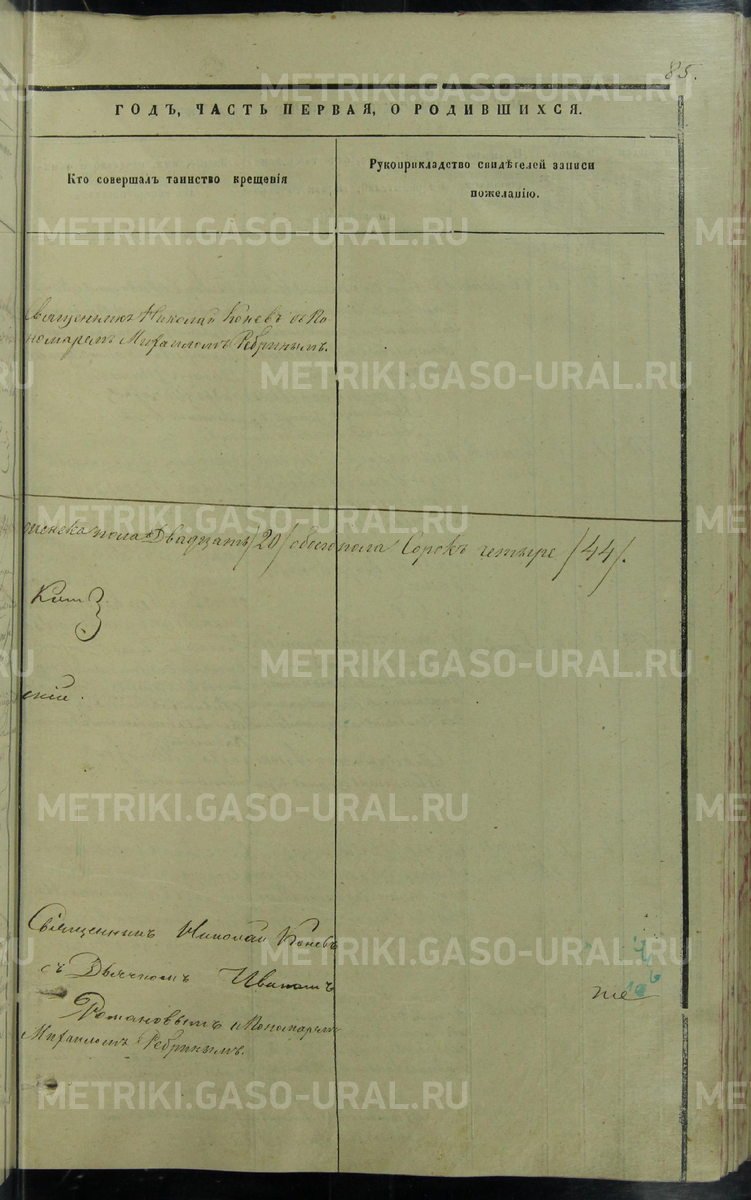 85.
ГОДЪ, ЧАСТЬ ПЕРВАЯ, О РОДИВШИХСЯ.
Кто совершалъ таинство крещенія
Рукоприкладство свидѣтелей записи
пожеланію.
Священникъ Николай Коневъ съ По
номаремъ Михаиломъ Ребринымъ.
женска пола Двадцать /20/ обоего пола Сорокъ четыре /44/.
скій.
Священникъ Николай Коневъ
съ Дьячкомъ Иваномъ
Романовымъ и Пономаремъ
Михаиломъ Ребринымъ.
METRIKI.GASO-URAL.RU